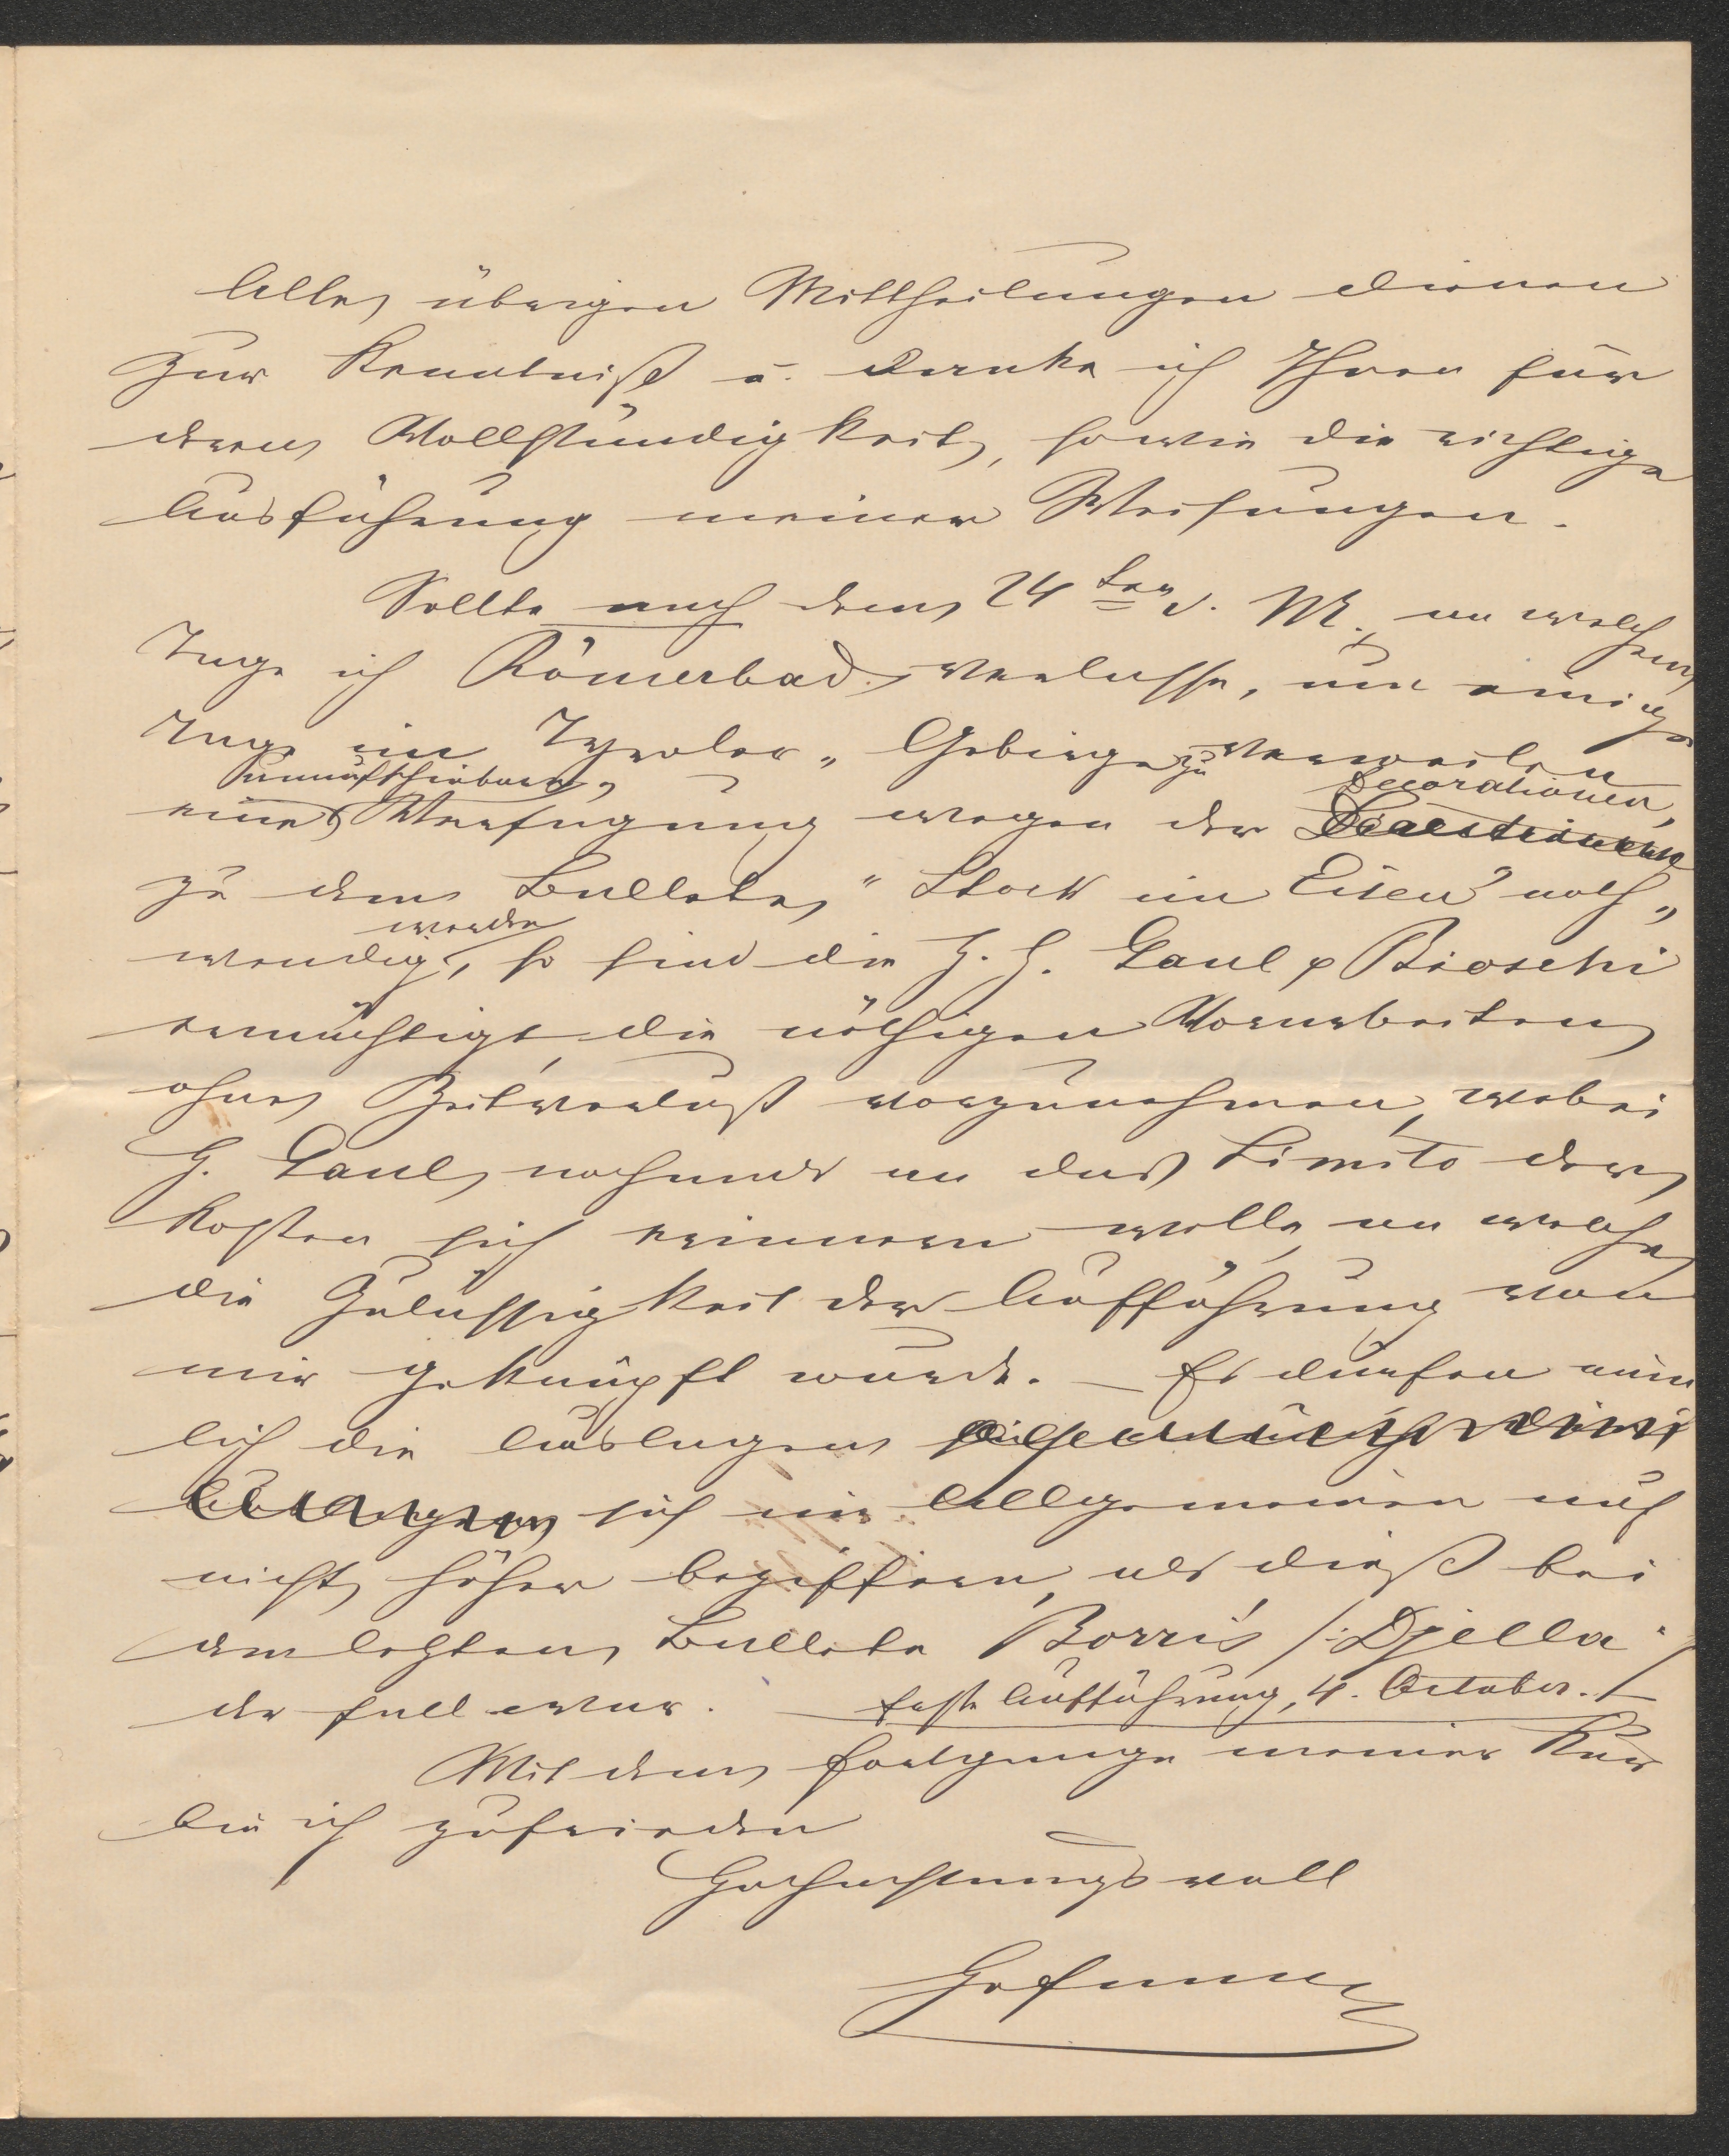 Alle übrigen Mittheilungen dienen
zur Kenntniß u. danke ich Ihnen für
deren Vollständigkeit, sowie die richtige
Ausführung meiner Weisungen.
Sollte nach dem 24ten d. M. an welchem
Tage ich Römerbad verlasse, um einige
Tage im Tyroler„ Gebirge zu verweilen,
unaufschiebbare,
Decorationen,
eine Verfügung wegen der
zu dem Ballete, "Stock im Eisen" noth„
werden
wendig, so sind die H. H. Gaul & Brioschi
ermächtigt die nöthigen Vorarbeiten
ohne Zeitverlust vorzunehmen, wobei
H. Gaul nochmals an das Limito der
Kosten sich erinnern wolle, an welche
die Zulässigkeit der Aufführung von
mir geknüpft wurde. – Es dürfen näm
lich die Auslagen
sich im Allgemeinen auch
nicht höher beziffern, als dieß bei
dem letzten Ballete Borri's /: Djella :/
der Fall war. – Erste Aufführung, 4. October. –
Mit dem Fortgange meiner Kur
bin ich zufrieden
Hochachtungsvoll
Hofmann